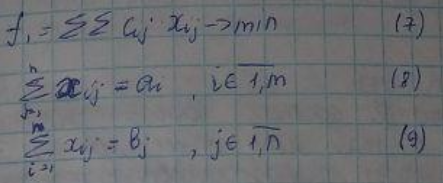 f₁ = ΣΣ cᵢⱼ xᵢⱼ → min (7)
n Σ j=1 xᵢⱼ = aᵢ , i ∈ 1,m (8)
m Σ i=1 xᵢⱼ = bⱼ , j ∈ 1,n (9)